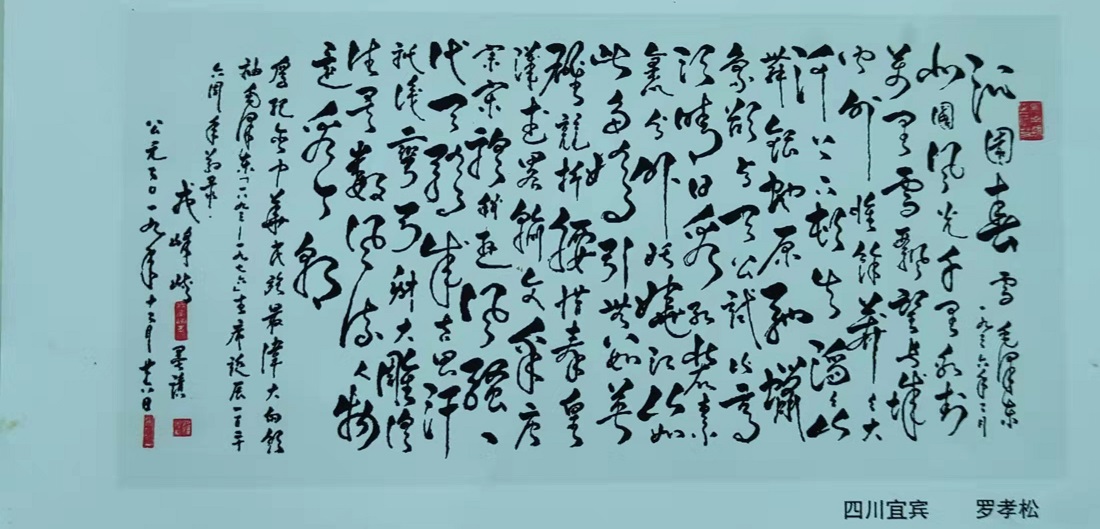 沁园春 雪 一九三六年二月 毛泽东
北国风光千里冰封
万里雪飘望长城
内外惟馀莽莽大
河上下顿失滔滔山
舞银蛇原驰蜡
象欲与天公试比高
须晴日看红装素
裹分外妖娆江山如
此多娇引无数英
雄竞折腰惜秦皇
汉武略输文采唐
宗宋祖稍逊风骚一
代天骄成吉思汗
只识弯弓射大雕俱
往矣数风流人物
还看今朝
纪念中华民族最伟大的领
袖毛泽东(一八九三—一九七六)主席诞辰一百二十
六周年
公元二〇一九年十二月廿六日
四川宜宾 罗孝松